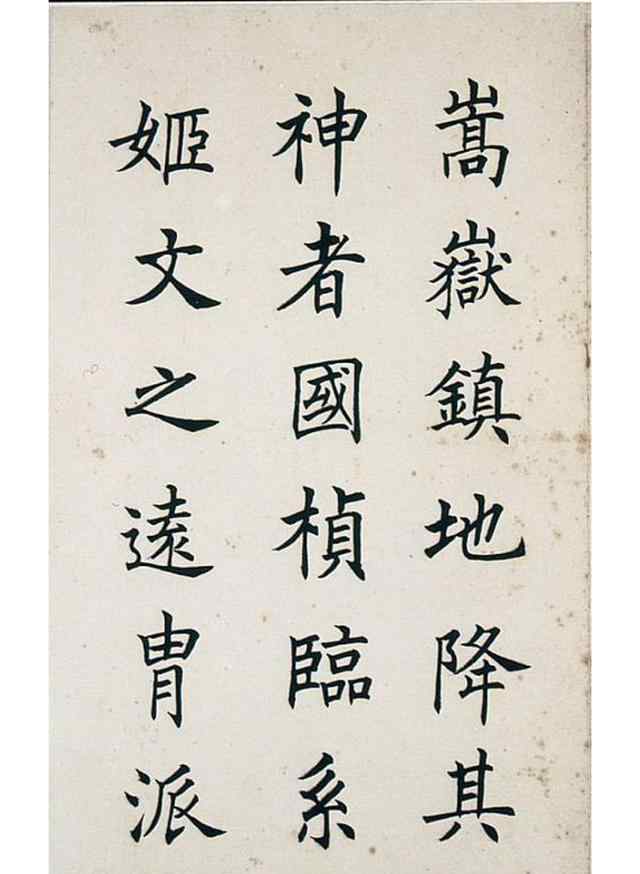 嵩嶽鎮地降其
神者國楨臨系
姬文之遠胄派